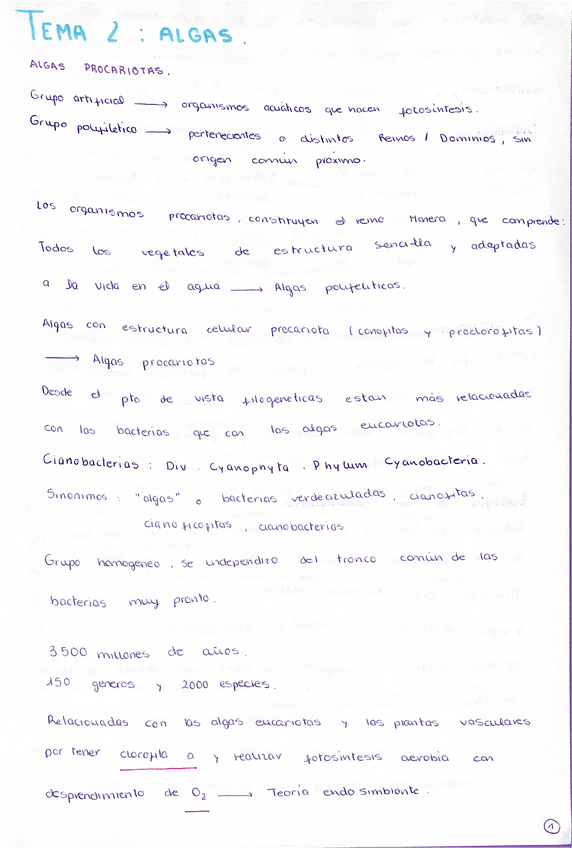 TEMA 2 : ALGAS.
ALGAS PROCARIOTAS.
Grupo artificial → organismos acuáticos que hacen fotosíntesis.
Grupo polifiletico → pertenecientes a distintos Reinos / Dominios, sin
origen común próximo.
Los organismos procariotas, constituyen el reino Monera, que comprende:
Todos los vegetales de estructura sencilla y adaptadas
a la vida en el agua → Algas polifeliticas.
Algas con estructura celular procariota (cianofitas y proclorofitas)
→ Algas procariotas
Desde el pto de vista filogeneticas estan más relacionadas
con las bacterias que con las algas eucariotas.
Cianobacterias : Div. Cyanophyta. Phylum Cyanobacteria.
Sinonimos : "algas" o bacterias verdeazuladas, cianofitas,
cianoficofitas, cianobacterias
Grupo homogeneo, se independizo del tronco común de las
bacterias muy pronto.
3500 millones de años.
150 generos y 2000 especies.
Relacionadas con las algas eucariotas y las plantas vasculares
por tener clorofila a y realizar fotosintesis aerobia con
desprendimiento de O₂ → Teoria endosimbionte.
1